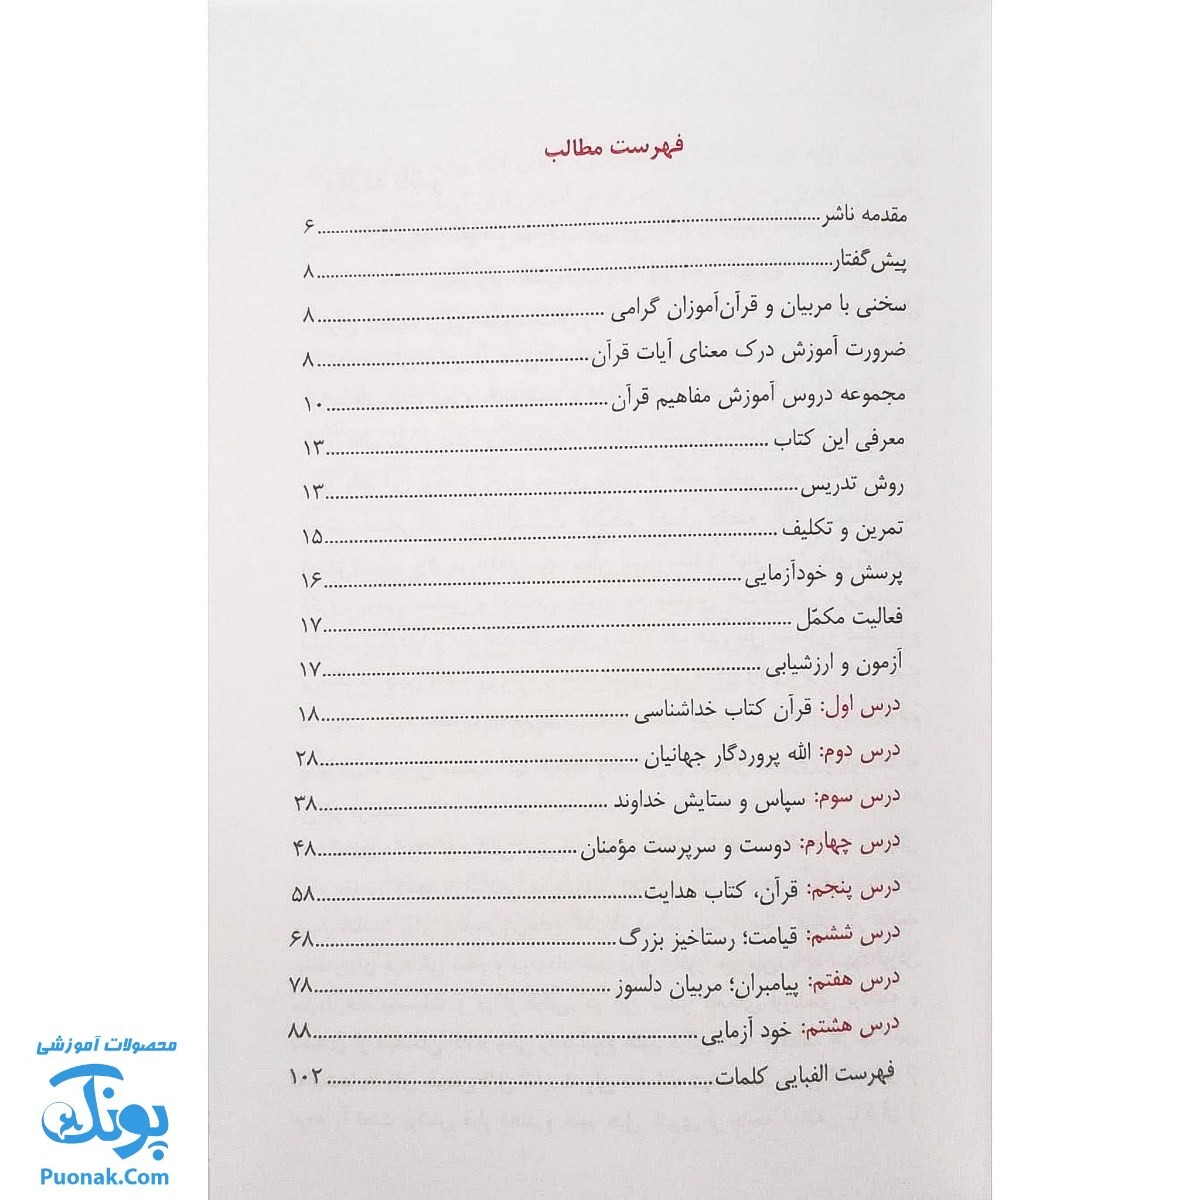 فهرست مطالب
مقدمه ناشر....................۶
پیش‌گفتار....................۸
سخنی با مربیان و قرآن‌آموزان گرامی ....................۸
ضرورت آموزش درک معنای آیات قرآن....................۸
مجموعه دروس آموزش مفاهیم قرآن....................۱۰
معرفی این کتاب ....................۱۳
روش تدریس....................۱۳
تمرین و تکلیف ....................۱۵
پرسش و خودآزمایی....................۱۶
فعالیت مکمّل ....................۱۷
آزمون و ارزشیابی ....................۱۷
درس اول: قرآن کتاب خداشناسی ....................۱۸
درس دوم: الله پروردگار جهانیان ....................۲۸
درس سوم: سپاس و ستایش خداوند ....................۳۸
درس چهارم: دوست و سرپرست مؤمنان ....................۴۸
درس پنجم: قرآن، کتاب هدایت....................۵۸
درس ششم: قیامت؛ رستاخیز بزرگ....................۶۸
درس هفتم: پیامبران؛ مربیان دلسوز ....................۷۸
درس هشتم: خود آزمایی ....................۸۸
فهرست الفبایی کلمات....................۱۰۲
محصولات آموزشی
پونک
Puonak.Com